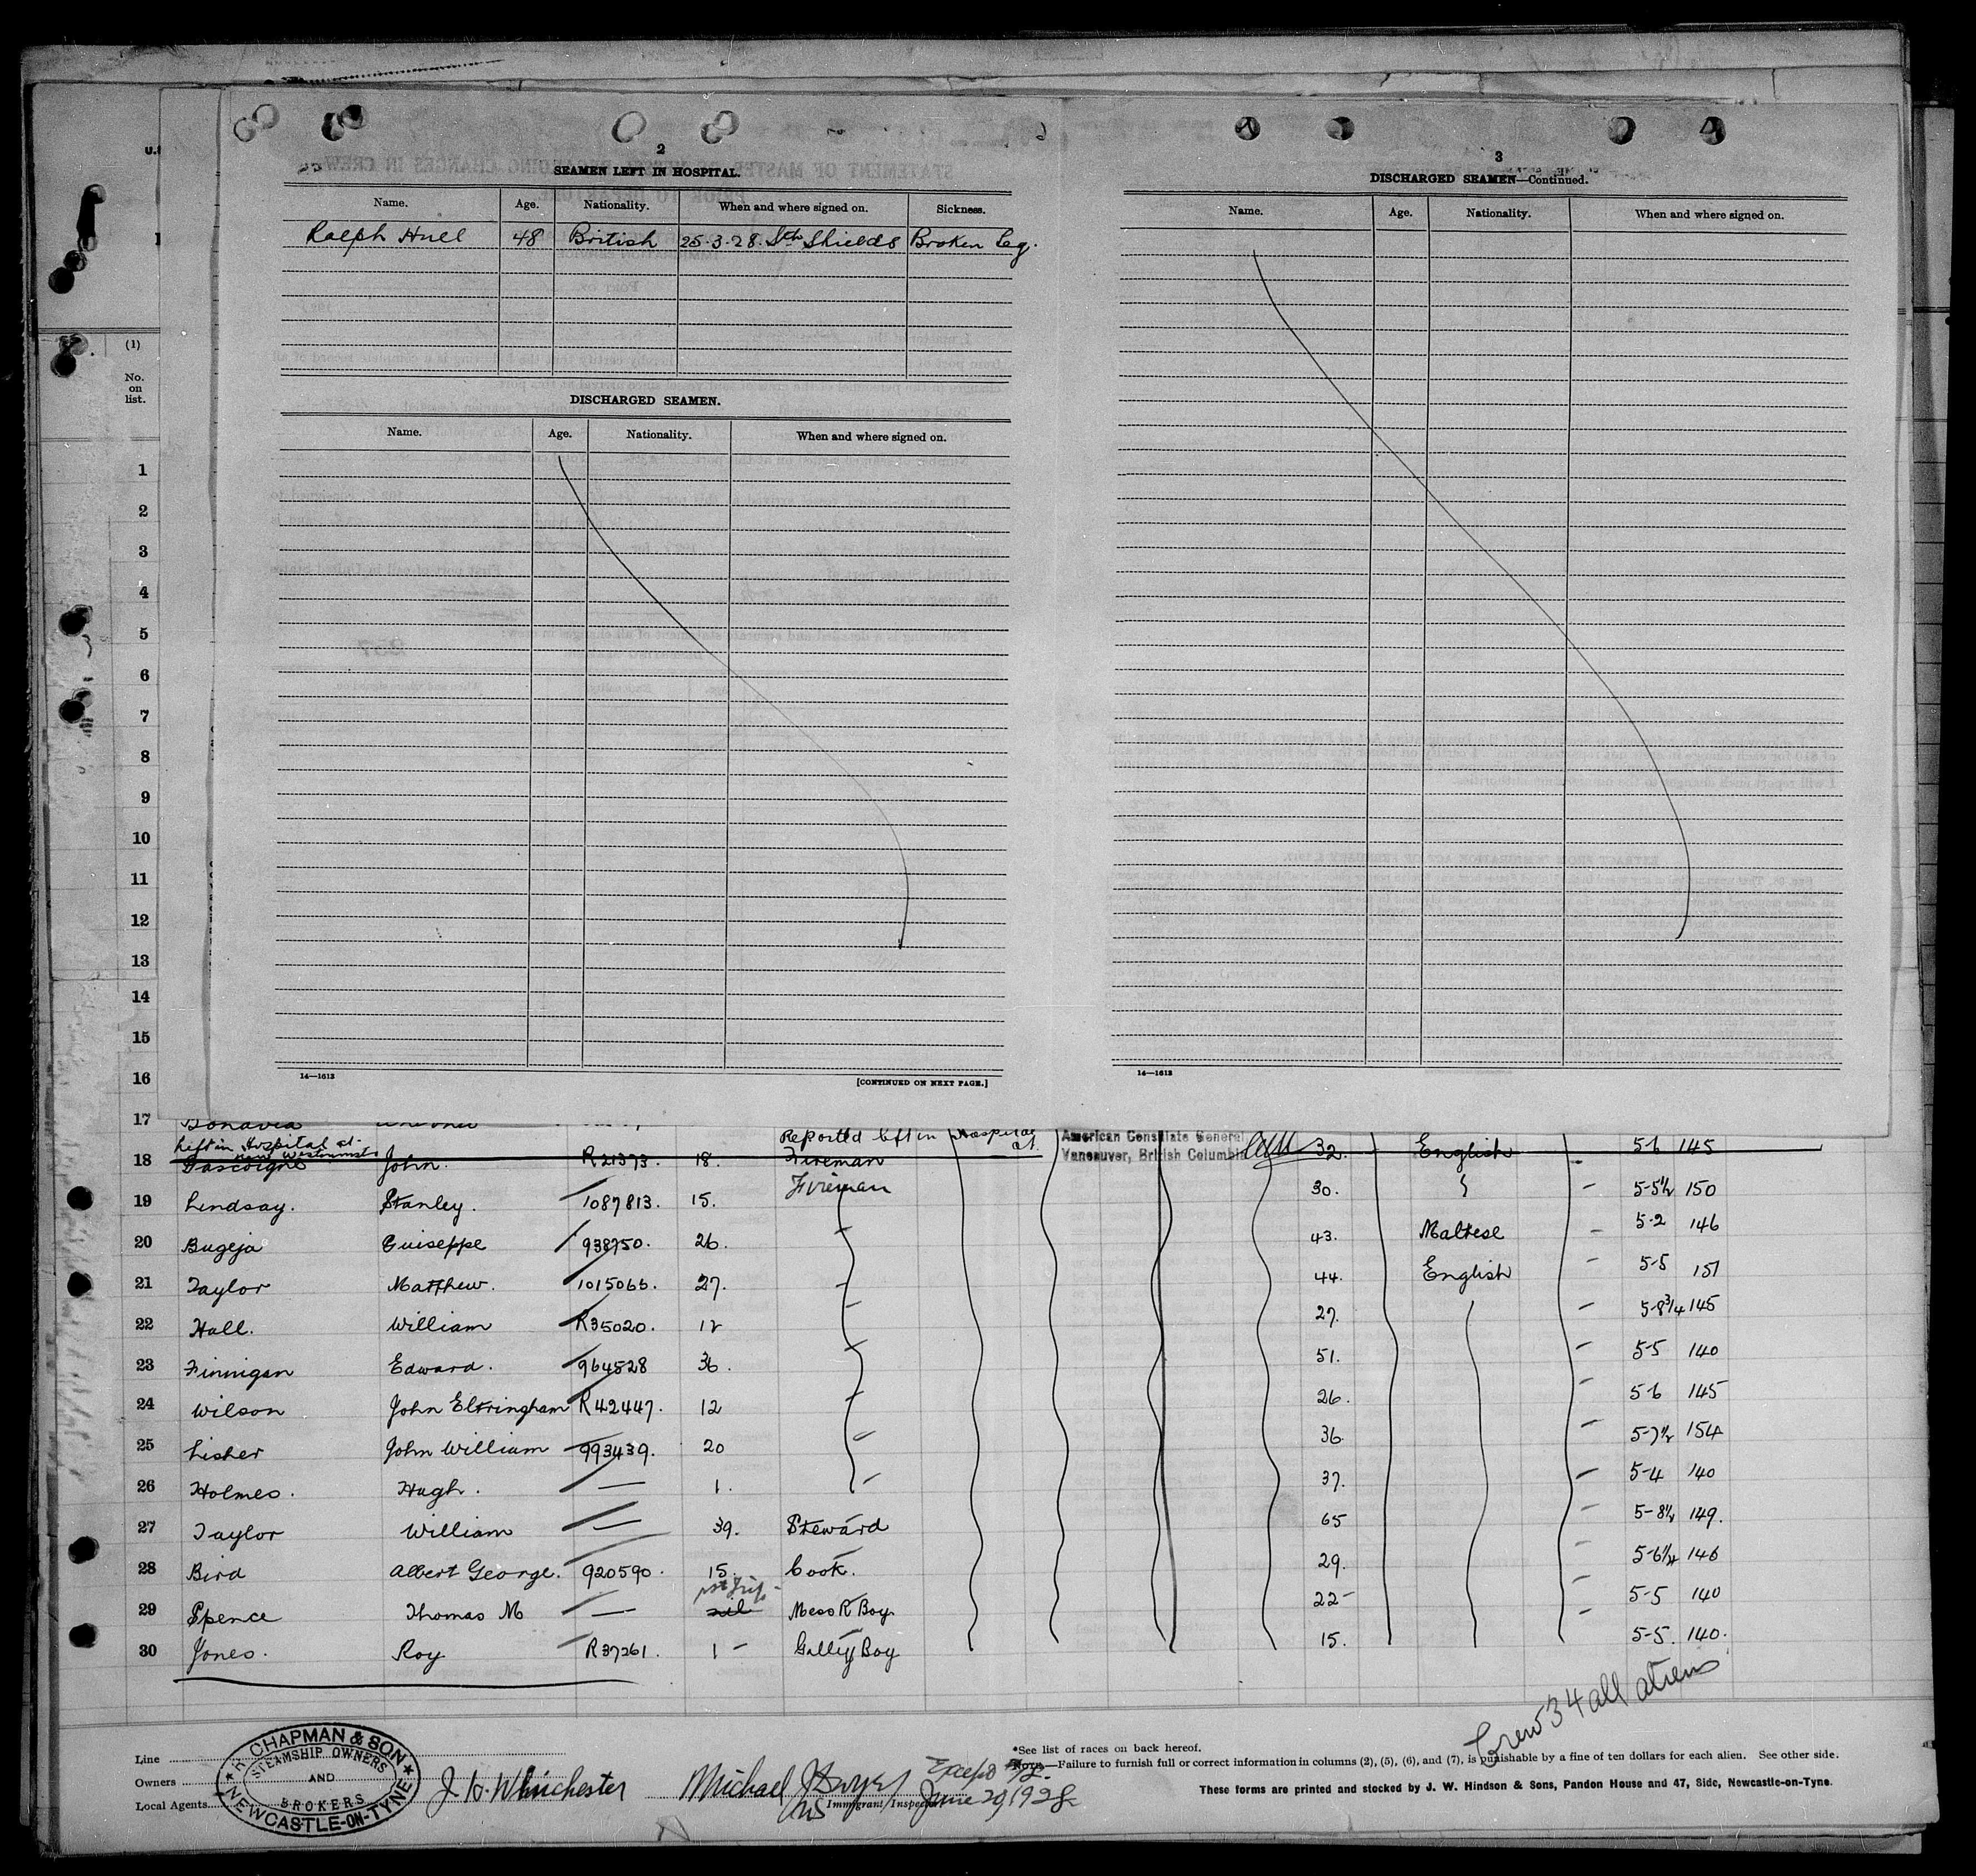 2
SEAMEN LEFT IN HOSPITAL.
Name. Age. Nationality. When and where signed on. Sickness.
Ralph Hull 48 British 25.3.28. Sth Shields Broken leg.
DISCHARGED SEAMEN.
Name. Age. Nationality. When and where signed on.
14—1613
[CONTINUED ON NEXT PAGE.]
3
DISCHARGED SEAMEN—Continued.
Name. Age. Nationality. When and where signed on.
14—1613
(1)
No. on list.
1
2
3
4
5
6
7
8
9
10
11
12
13
14
15
16
17 Bonavia
Left in Hospital at New Westminster
Reported left in Hospital at
American Consulate General
Vancouver, British Columbia
18 Gascoigne John. R21373 18. Fireman 32. English 5-6 145
19 Lindsay. Stanley. 1087813. 15. Fireman 30. 5-5½ 150
20 Bugeja Guiseppe 938750. 26. 43. Maltese 5-2 146
21 Taylor Matthew. 1015066. 27. 44. English 5-5 151
22 Hall. William R35020. 12 27. 5-8¾ 145
23 Finnigan Edward. 964528 36. 51. 5-5 140
24 Wilson John Eltringham R42447. 12 26. 5-6 145
25 Lisher John William 993439. 20 36. 5-7½ 154
26 Holmes. Hugh. — 1. 37. 5-4 140
27 Taylor William — 39. Steward 65 5-8½ 149.
28 Bird Albert George. 920590. 15. Cook. 29. 5-6¼ 146
29 Spence Thomas M — 1st Trip nil Mess R Boy 22 5-5 140
30 Jones. Roy R37261. 1 — Galley Boy 15. 5-5. 140.
Crew 34 all aliens
Line
Owners
Local Agents
R. CHAPMAN & SON
STEAMSHIP OWNERS
AND
BROKERS
NEWCASTLE-ON-TYNE
J. W. Whinchester
Michael
Immigrant Inspector
Except
June 20, 1928
*See list of races on back hereof.
NOTE.—Failure to furnish full or correct information in columns (2), (5), (6), and (7), is punishable by a fine of ten dollars for each alien. See other side.
These forms are printed and stocked by J. W. Hindson & Sons, Pandon House and 47, Side, Newcastle-on-Tyne.